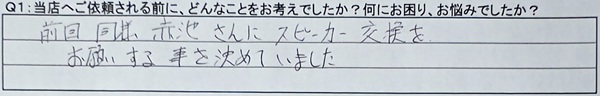 Q1:当店へご依頼される前に、どんなことをお考えでしたか？何にお困り、お悩みでしたか？
前回同様、赤池さんにスピーカー交換を
お願いする事を決めていました